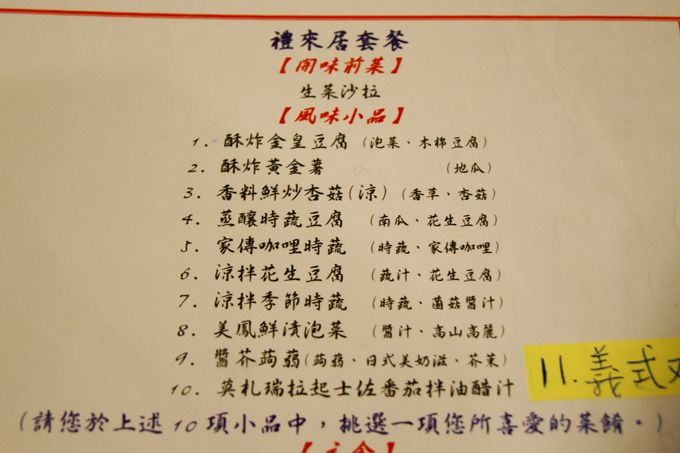 禮來居套餐
【開味前菜】
生菜沙拉
【風味小品】
1. 酥炸金皇豆腐 (泡菜、木棉豆腐)
2. 酥炸黃金薯 (地瓜)
3. 香料鮮炒杏菇(涼) (香草、杏菇)
4. 蒸釀時蔬豆腐 (南瓜、花生豆腐)
5. 家傳咖哩時蔬 (時蔬、家傳咖哩)
6. 涼拌花生豆腐 (蔬汁、花生豆腐)
7. 涼拌季節時蔬 (時蔬、菌菇醬汁)
8. 美鳳鮮漬泡菜 (醬汁、高山高麗)
9. 醬芥蒟蒻(蒟蒻、日式美奶滋、芥茉)
11.義式
10. 莫札瑞拉起士佐番茄拌油醋汁
(請您於上述10項小品中，挑選一項您所喜愛的菜餚。)